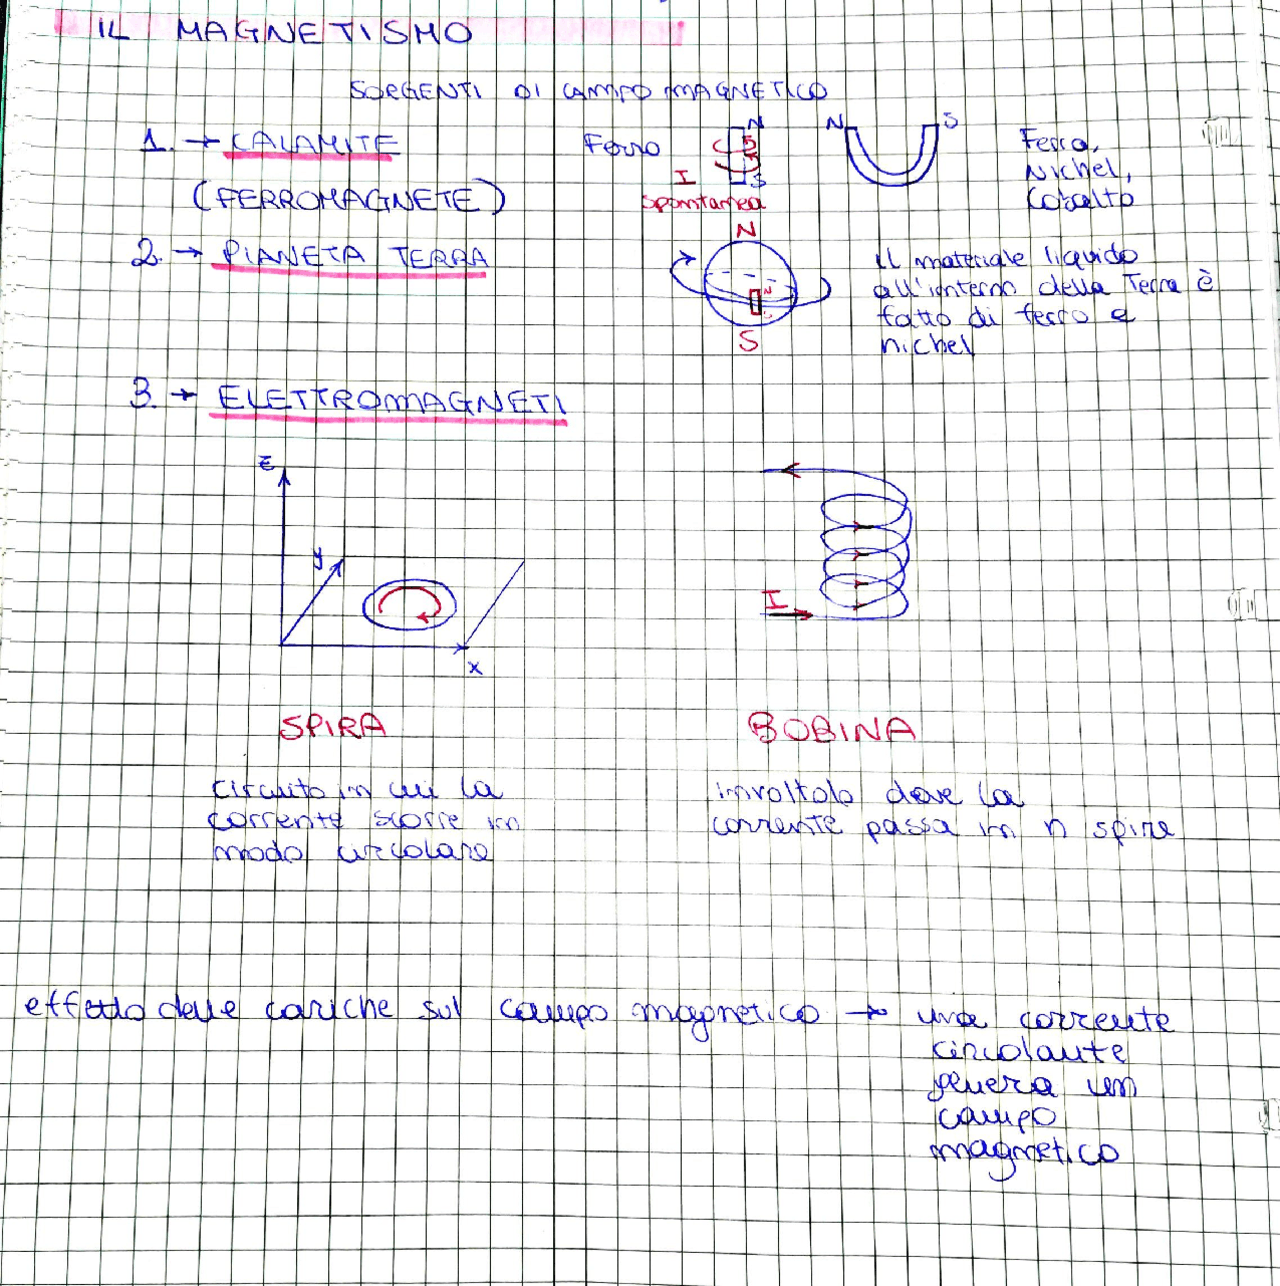 IL MAGNETISMO
SORGENTI DI CAMPO MAGNETICO
1. → CALAMITE
(FERROMAGNETE)
Ferro
N
S
I
spontanea
N
S
Ferro,
Nichel,
Cobalto
2. → PIANETA TERRA
N
N
S
Il materiale liquido
all'interno della Terra è
fatto di ferro e
nichel
3. → ELETTROMAGNETI
z
y
x
I
SPIRA
BOBINA
circuito in cui la
corrente scorre in
modo circolare
involtolo dove la
corrente passa in n spire
effetto delle cariche sul campo magnetico → una corrente
circolante
genera un
campo
magnetico